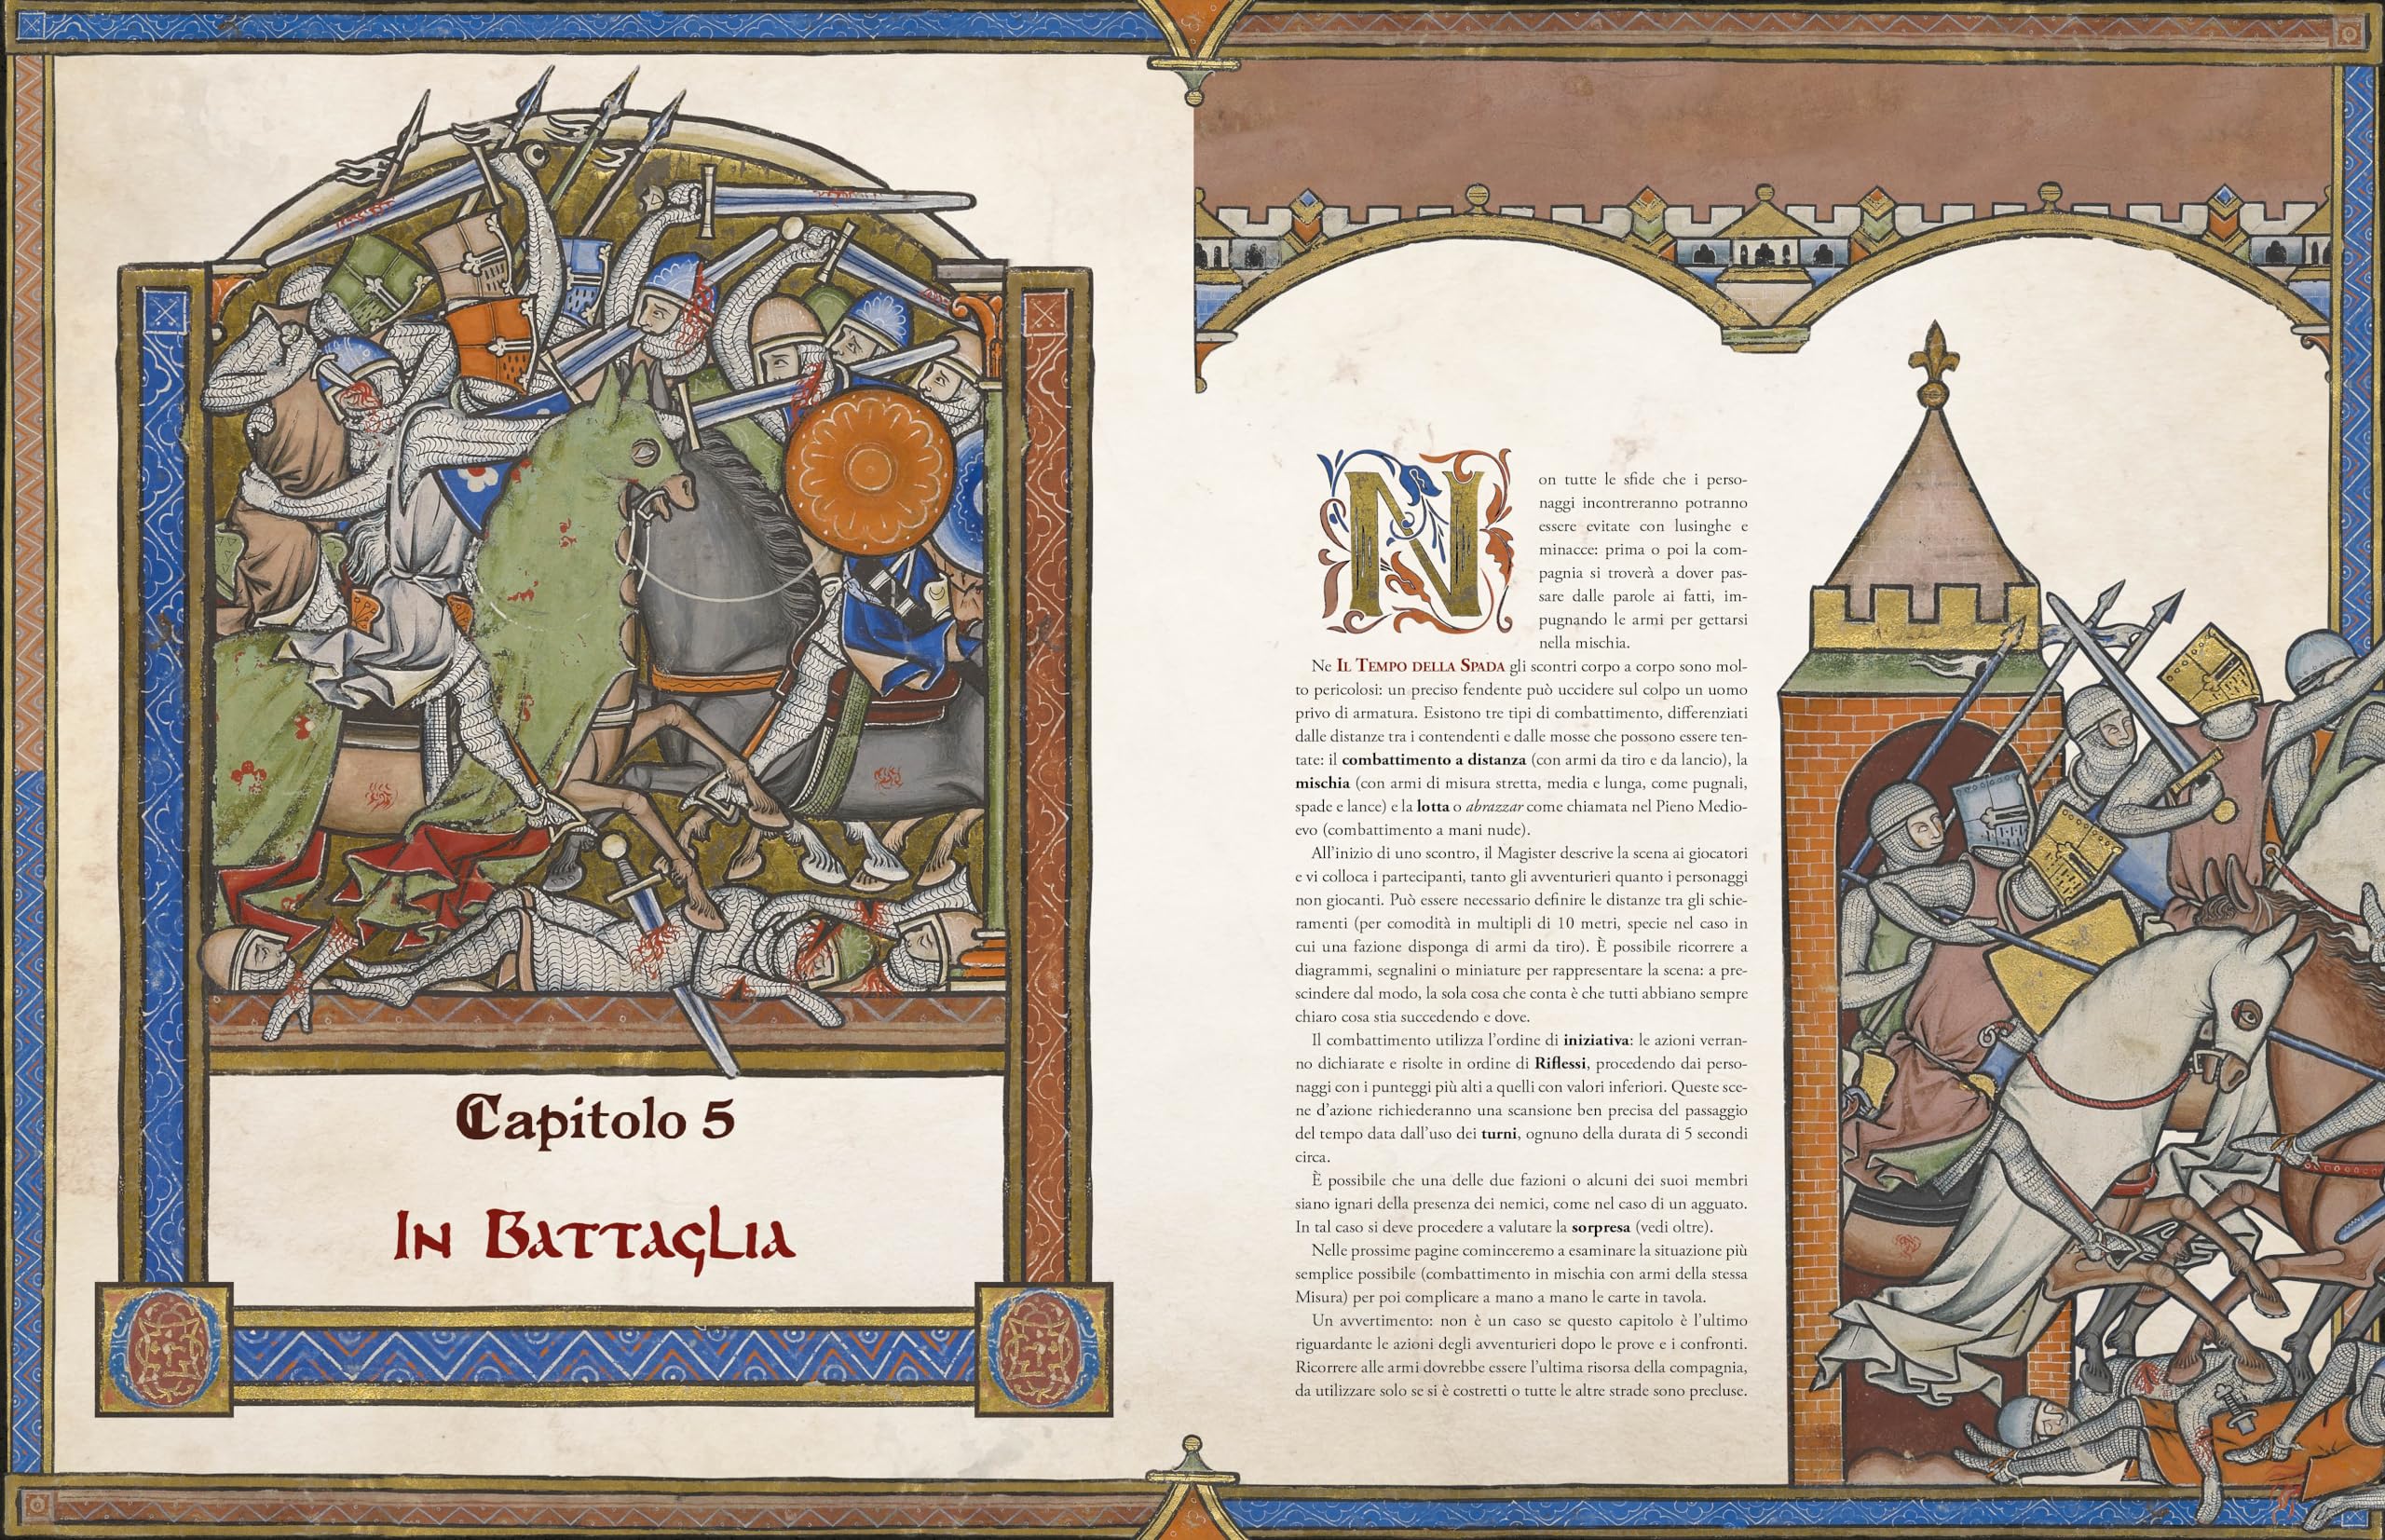 Capitolo 5
In Battaglia
Non tutte le sfide che i perso-
naggi incontreranno potranno
essere evitate con lusinghe e
minacce: prima o poi la com-
pagnia si troverà a dover pas-
sare dalle parole ai fatti, im-
pugnando le armi per gettarsi
nella mischia.
Ne Il Tempo della Spada gli scontri corpo a corpo sono mol-
to pericolosi: un preciso fendente può uccidere sul colpo un uomo
privo di armatura. Esistono tre tipi di combattimento, differenziati
dalle distanze tra i contendenti e dalle mosse che possono essere ten-
tate: il combattimento a distanza (con armi da tiro e da lancio), la
mischia (con armi di misura stretta, media e lunga, come pugnali,
spade e lance) e la lotta o abrazzar come chiamata nel Pieno Medio-
evo (combattimento a mani nude).
All'inizio di uno scontro, il Magister descrive la scena ai giocatori
e vi colloca i partecipanti, tanto gli avventurieri quanto i personaggi
non giocanti. Può essere necessario definire le distanze tra gli schie-
ramenti (per comodità in multipli di 10 metri, specie nel caso in
cui una fazione disponga di armi da tiro). È possibile ricorrere a
diagrammi, segnalini o miniature per rappresentare la scena: a pre-
scindere dal modo, la sola cosa che conta è che tutti abbiano sempre
chiaro cosa stia succedendo e dove.
Il combattimento utilizza l'ordine di iniziativa: le azioni verran-
no dichiarate e risolte in ordine di Riflessi, procedendo dai perso-
naggi con i punteggi più alti a quelli con valori inferiori. Queste sce-
ne d'azione richiederanno una scansione ben precisa del passaggio
del tempo data dall'uso dei turni, ognuno della durata di 5 secondi
circa.
È possibile che una delle due fazioni o alcuni dei suoi membri
siano ignari della presenza dei nemici, come nel caso di un agguato.
In tal caso si deve procedere a valutare la sorpresa (vedi oltre).
Nelle prossime pagine cominceremo a esaminare la situazione più
semplice possibile (combattimento in mischia con armi della stessa
Misura) per poi complicare a mano a mano le carte in tavola.
Un avvertimento: non è un caso se questo capitolo è l'ultimo
riguardante le azioni degli avventurieri dopo le prove e i confronti.
Ricorrere alle armi dovrebbe essere l'ultima risorsa della compagnia,
da utilizzare solo se si è costretti o tutte le altre strade sono precluse.